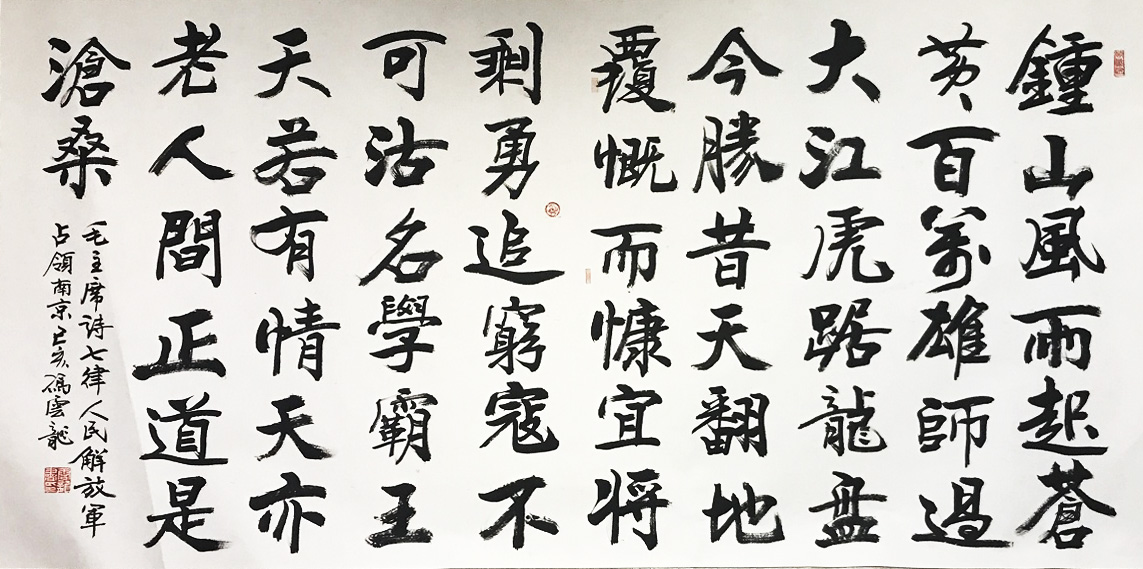 鍾山風雨起蒼
黃百萬雄師過
大江虎踞龍盤
今勝昔天翻地
覆慨而慷宜將
剩勇追窮寇不
可沽名學霸王
天若有情天亦
老人間正道是
滄桑
毛主席詩七律人民解放軍
占領南京己亥馮雲龍